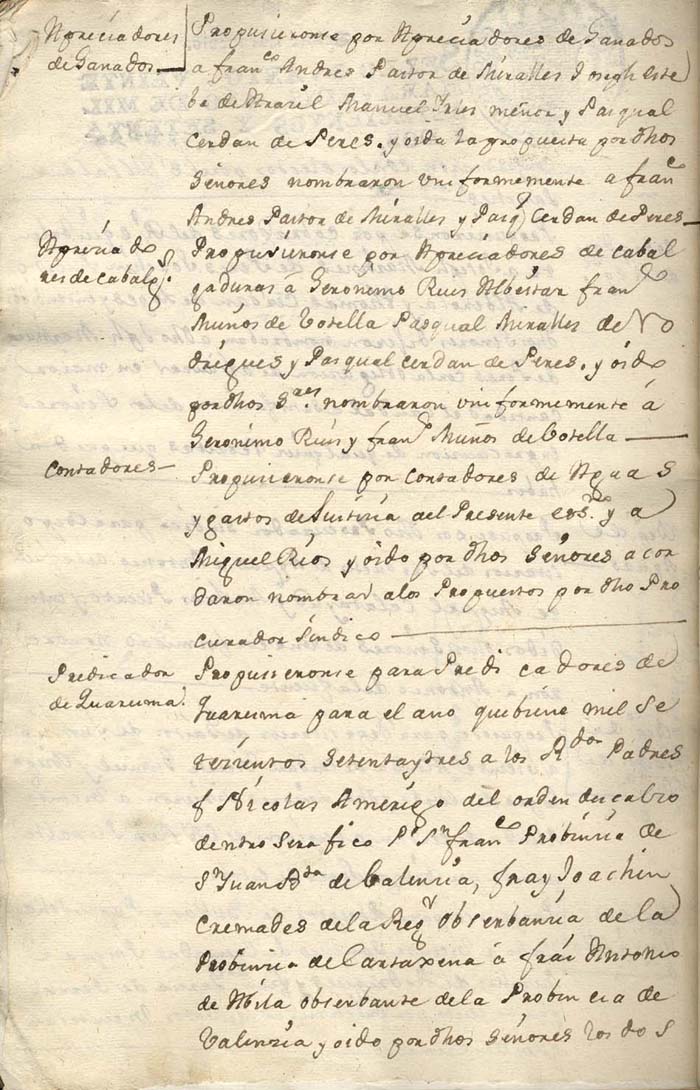 Apreciadores
de Ganados
Propusieronse por Apreciadores de Ganados
a franco Andres Pastor de Miralles Joseph Este
be de Marzil Manuel Yries menor y Pasqual
Cerdan de Peres. y oida la propuesta por dhos
Señores nombraron uniformemente a franco
Andres Pastor de Miralles y Pasql Cerdan de Peres
Aprecia do
res de cabalgs.
Propusieronse por Apreciadores de cabal
gaduras á Geronimo Ruis Albestar franco
Muños de Botella Pasqual Miralles de Ro
drigues y Pasqual Cerdan de Peres. y oido
por dhos Sres nombraron uniformemente á
Geronimo Ruis y franco Muños de Botella
Contadores
Propusieronse por Contadores de Aguas
y gastos de Justicia al Presente y a
Miguel Rios y oido por dhos Señores acor
daron nombrar a los Propuestos por dho Pro
curador Sindico
Predicador
de Quaresma
Propusieronse para Predicadores de
Quaresma para el año que biene mil Se
tecientos Setentaytres a los Rdos Padres
f Nicolas Amerigo del orden de
de ntro Serafico P. Sn franco Probincia de
Sn Juan Bta de Balencia, fray Joachin
Cremades de la Regr Obserbancia de la
Probincia de Cartaxena á frai Antonio
de Mila obserbante de la Probincia de
Valencia y oido por dhos Señores los dos